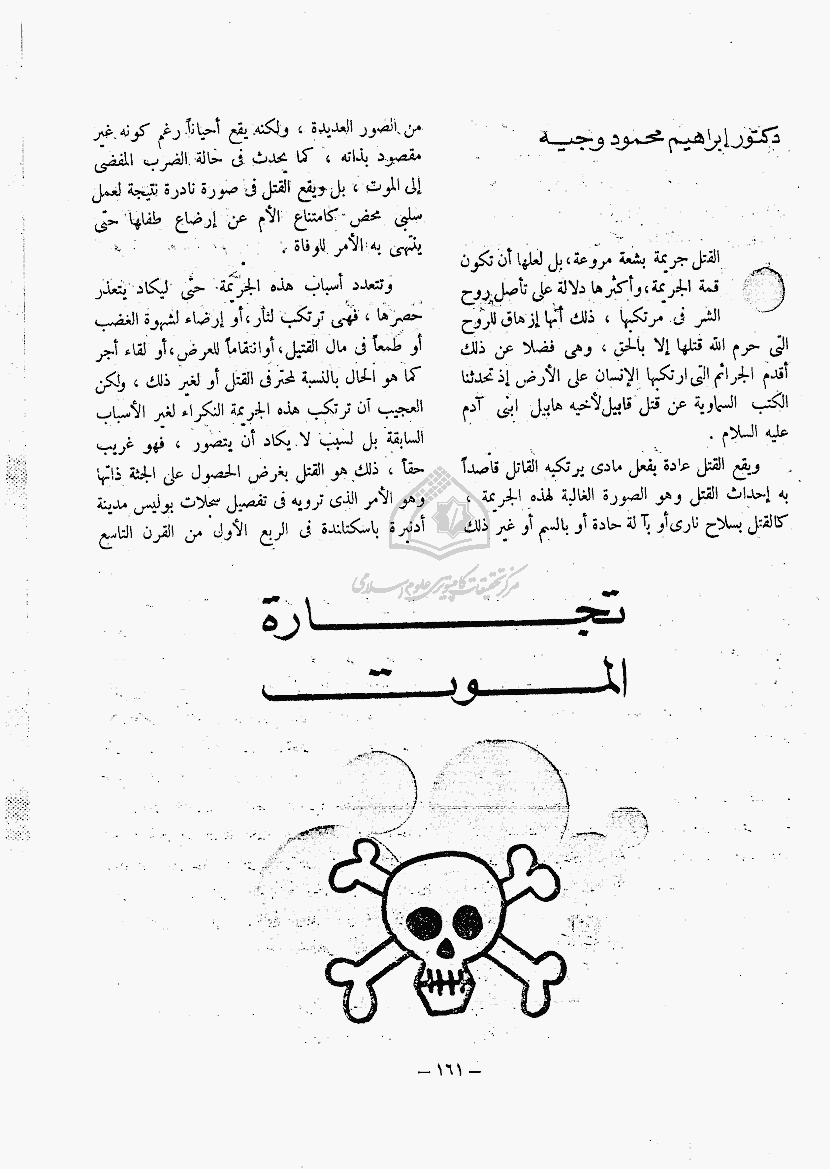 دكتور إبراهيم محمود وجيه
القتل جريمة بشعة مروعة، بل لعلها أن تكون
قمة الجريمة، وأكثرها دلالة على تأصل روح
الشر فى مرتكبها ، ذلك أنها إزهاق للروح
التى حرم الله قتلها إلا بالحق ، وهى فضلا عن ذلك
أقدم الجرائم التى ارتكبها الإنسان على الأرض إذ تحدثنا
الكتب السماوية عن قتل قابيل لأخيه هابيل ابنى آدم
عليه السلام .
ويقع القتل عادة بفعل مادى يرتكبه القاتل قاصداً
به إحداث القتل وهو الصورة الغالبة لهذه الجريمة ،
كالقتل بسلاح نارى أو بآلة حادة أو بالسم أو غير ذلك
من الصور العديدة ، ولكنه يقع أحياناً رغم كونه غير
مقصود بذاته ، كما يحدث فى حالة الضرب المفضى
إلى الموت ، بل ويقع القتل فى صورة نادرة نتيجة لعمل
سلبى محض كامتناع الأم عن إرضاع طفلها حتى
ينتهى به الأمر للوفاة .
وتتعدد أسباب هذه الجريمة حتى ليكاد يتعذر
حصرها ، فهى ترتكب لثأر، أو إرضاء لشهوة الغضب
أو طمعاً فى مال القتيل، أو انتقاماً للعرض، أو لقاء أجر
كما هو الحال بالنسبة لمحترفى القتل أو لغير ذلك ، ولكن
العجيب أن ترتكب هذه الجريمة النكراء لغير الأسباب
السابقة بل لسبب لا يكاد أن يتصور ، فهو غريب
حقاً ، ذلك هو القتل بغرض الحصول على الجثة ذاتها
وهو الأمر الذى ترويه فى تفصيل سجلات بوليس مدينة
أدنبرة باسكتلندة فى الربع الأول من القرن التاسع
مرکز تحقیقات کامپیوتری علوم اسلامی
تجـــارة
المـــوت
– ١٦١ –